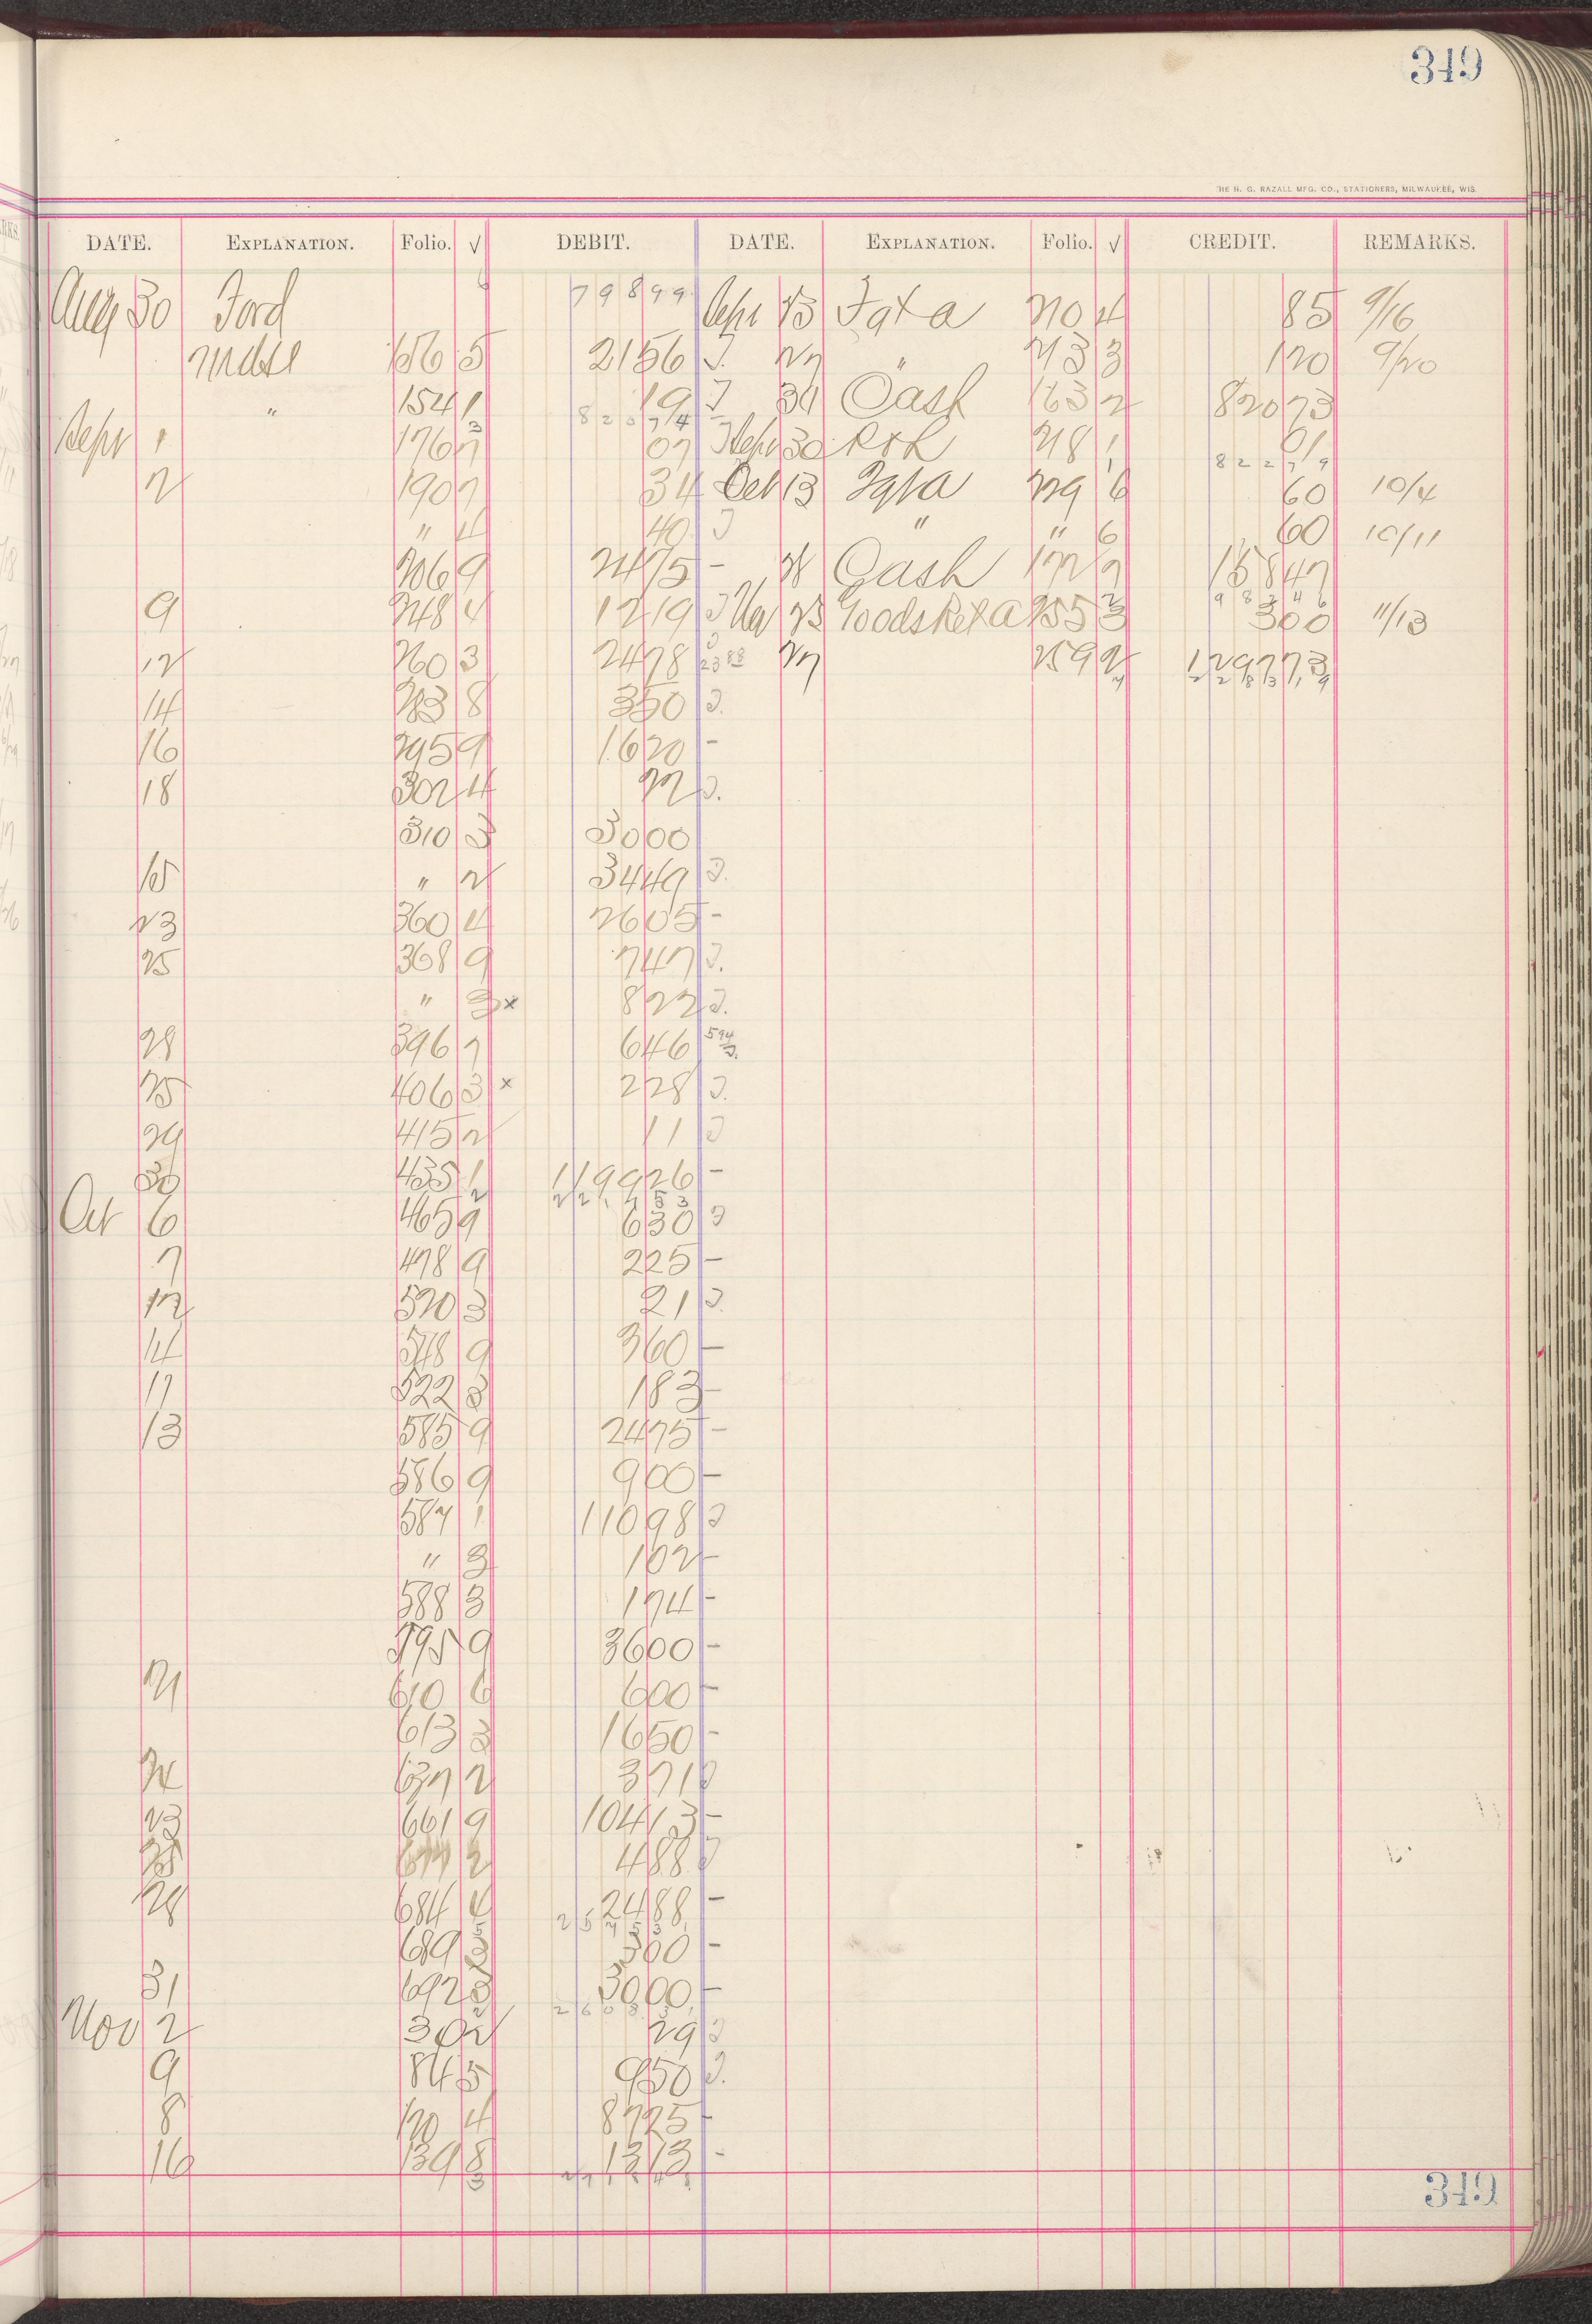 349
THE H. G. RAZALL MFG. CO., STATIONERS, MILWAUKEE, WIS.
DATE. EXPLANATION. Folio. √ DEBIT. DATE. EXPLANATION. Folio. √ CREDIT. REMARKS.
Aug 30 Ford 79899 Sept 23 Fgt a 210 4 85 9/16
Mdse 156 5 2156 J. 27 " 233 120 9/20
" 154 1 19 J 30 Cash 163 2 82073
82074
Sept 1 176 7 07 J Sept 30 218 1 01
82279
2 190 7 34 Oct 13 Fgt a 229 6 60 10/4
" 4 40 J " " 6 60 10/11
206 9 2475 - 28 Cash 172 7 15847
98346
9 248 4 1219 J Nov 25 Goods Ret a 255 3 300 11/13
12 260 3 2478 2388 27 259 2 129773
14 283 8 350 J.
16 295 9 1620 -
18 302 4 22 J.
310 3 3000
15 " 2 3449 J.
23 360 4 2605 -
25 368 9 747 J.
" 3 x 822 J.
28 396 7 646 594 J.
25 406 3 x 228 J.
29 415 2 11 J
30 435 1 119926 -
Oct 6 465 9 630 J
7 478 9 225 -
12 520 3 21 J.
14 548 9 360 -
17 522 3 183 -
13 585 9 2475 -
586 9 900 -
587 1 11098 J
" 3 102 -
588 3 174 -
595 9 3600 -
21 610 6 600 -
613 3 1650 -
24 637 2 371 J
23 661 9 10413 -
25 2 488 J
28 684 4 2488 -
25753
689 3 300 -
31 692 3 3000 -
26083
Nov 2 30 2 29 J
9 84 5 950 J.
8 120 4 8725 -
16 139 8 1313 -
349